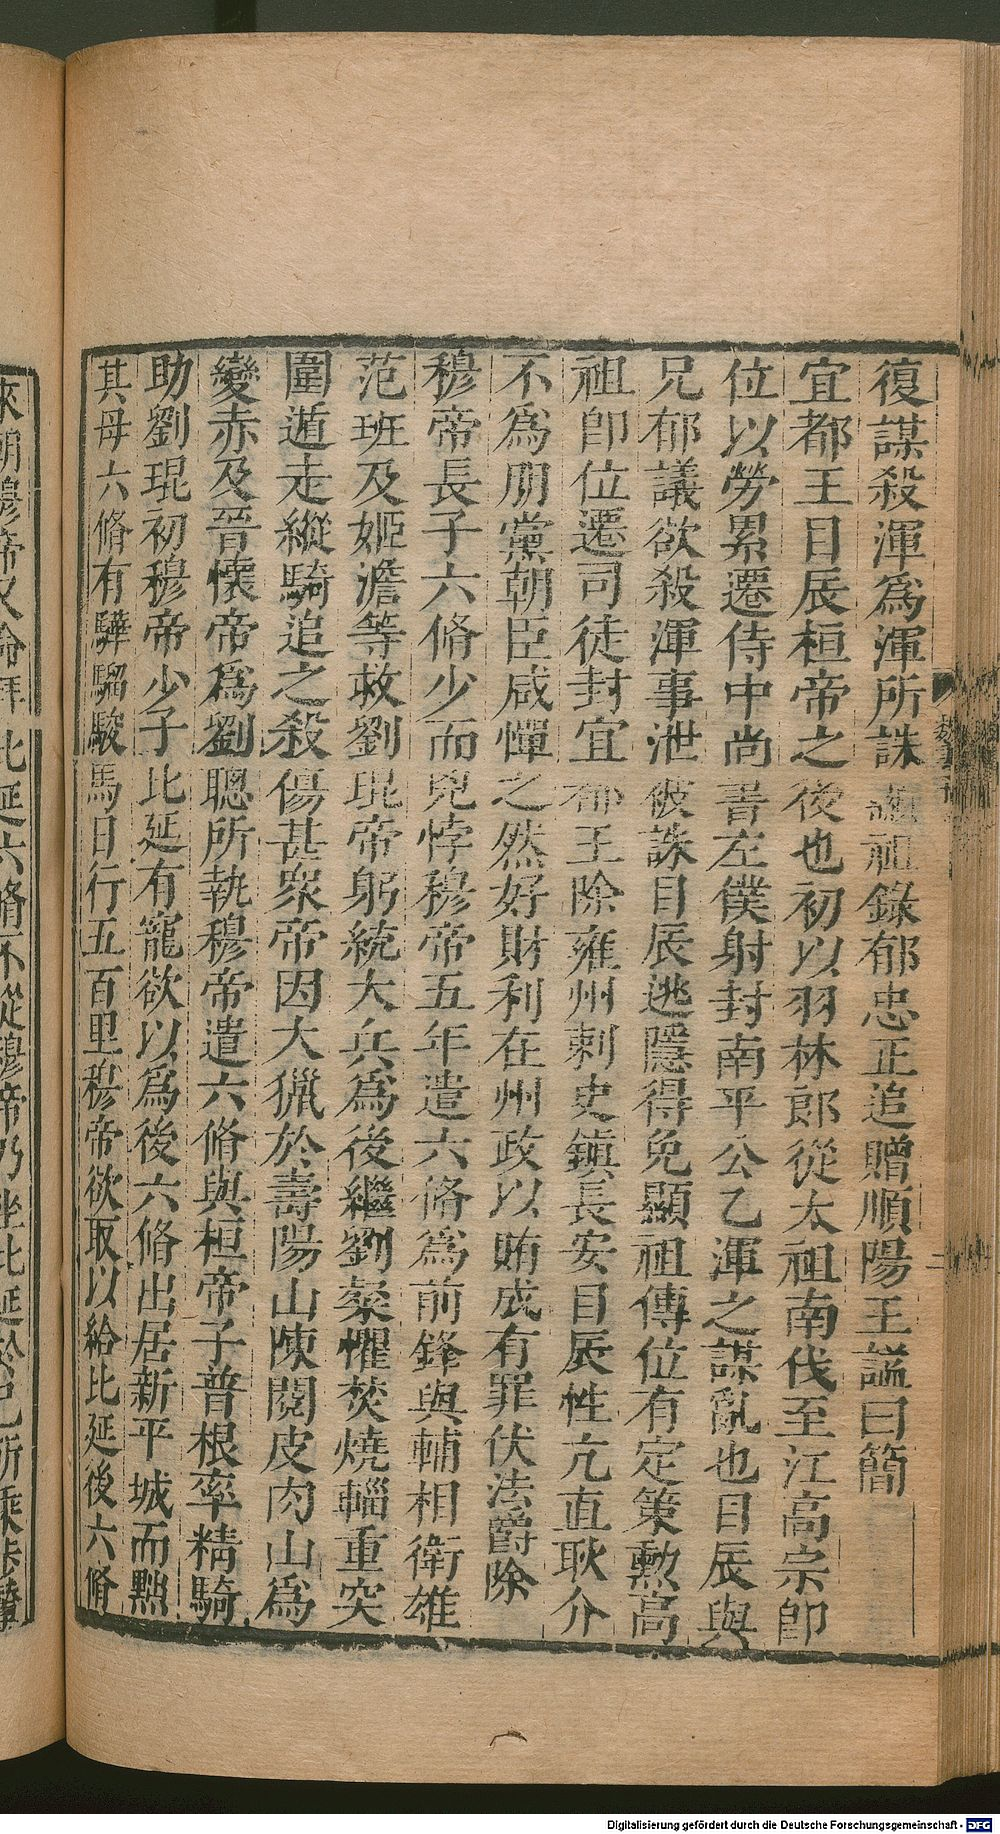 復謀殺渾爲渾所誅顯祖錄郁忠正追贈順陽王諡曰簡
宜都王目辰桓帝之後也初以羽林郎從太祖南伐至江高宗即
位以勞累遷侍中尚書左僕射封南平公乙渾之謀亂也目辰與
兄郁議欲殺渾事泄被誅目辰逃隱得免顯祖傳位有定策勳高
祖即位遷司徒封宜都王除雍州刺史鎮長安目辰性亢直耿介
不爲朋黨朝臣咸憚之然好財利在州政以賄成有罪伏法爵除
穆帝長子六脩少而兇悖穆帝五年遣六脩爲前鋒與輔相衛雄
范班及姬澹等救劉琨帝躬統大兵爲後繼劉粲懼焚燒輜重突
圍遁走縱騎追之殺傷甚衆帝因大獵於壽陽山陳閱皮肉山爲
變赤及晉懷帝爲劉聰所執穆帝遣六脩與桓帝子普根率精騎
助劉琨初穆帝少子比延有寵欲以爲後六脩出居新平城而黜
其母六脩有驊騮駿馬日行五百里穆帝欲取以給比延後六脩
來朝穆帝又命拜比延六脩不從穆帝乃坐比延於己所乘步輦
Digitalisierung gefördert durch die Deutsche Forschungsgemeinschaft - DFG